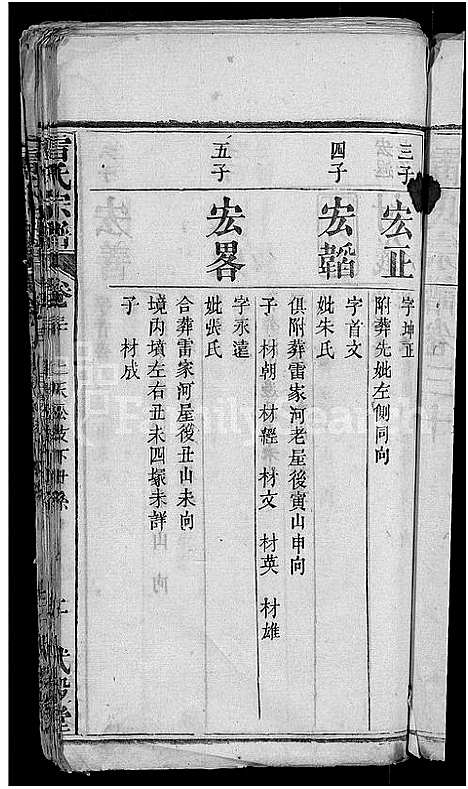 三子
宏正
字坤正
附葬先妣左側同向
四子
宏韜
字首文
妣朱氏
俱附葬雷家河老屋後寅山申向
子 材朝 材經 材文 材英 材雄
五子
宏畧
字永遠
妣張氏
合葬雷家河屋後丑山未向
境内墳左右丑未四塚未詳
子 材成
雷氏宗譜
卷三